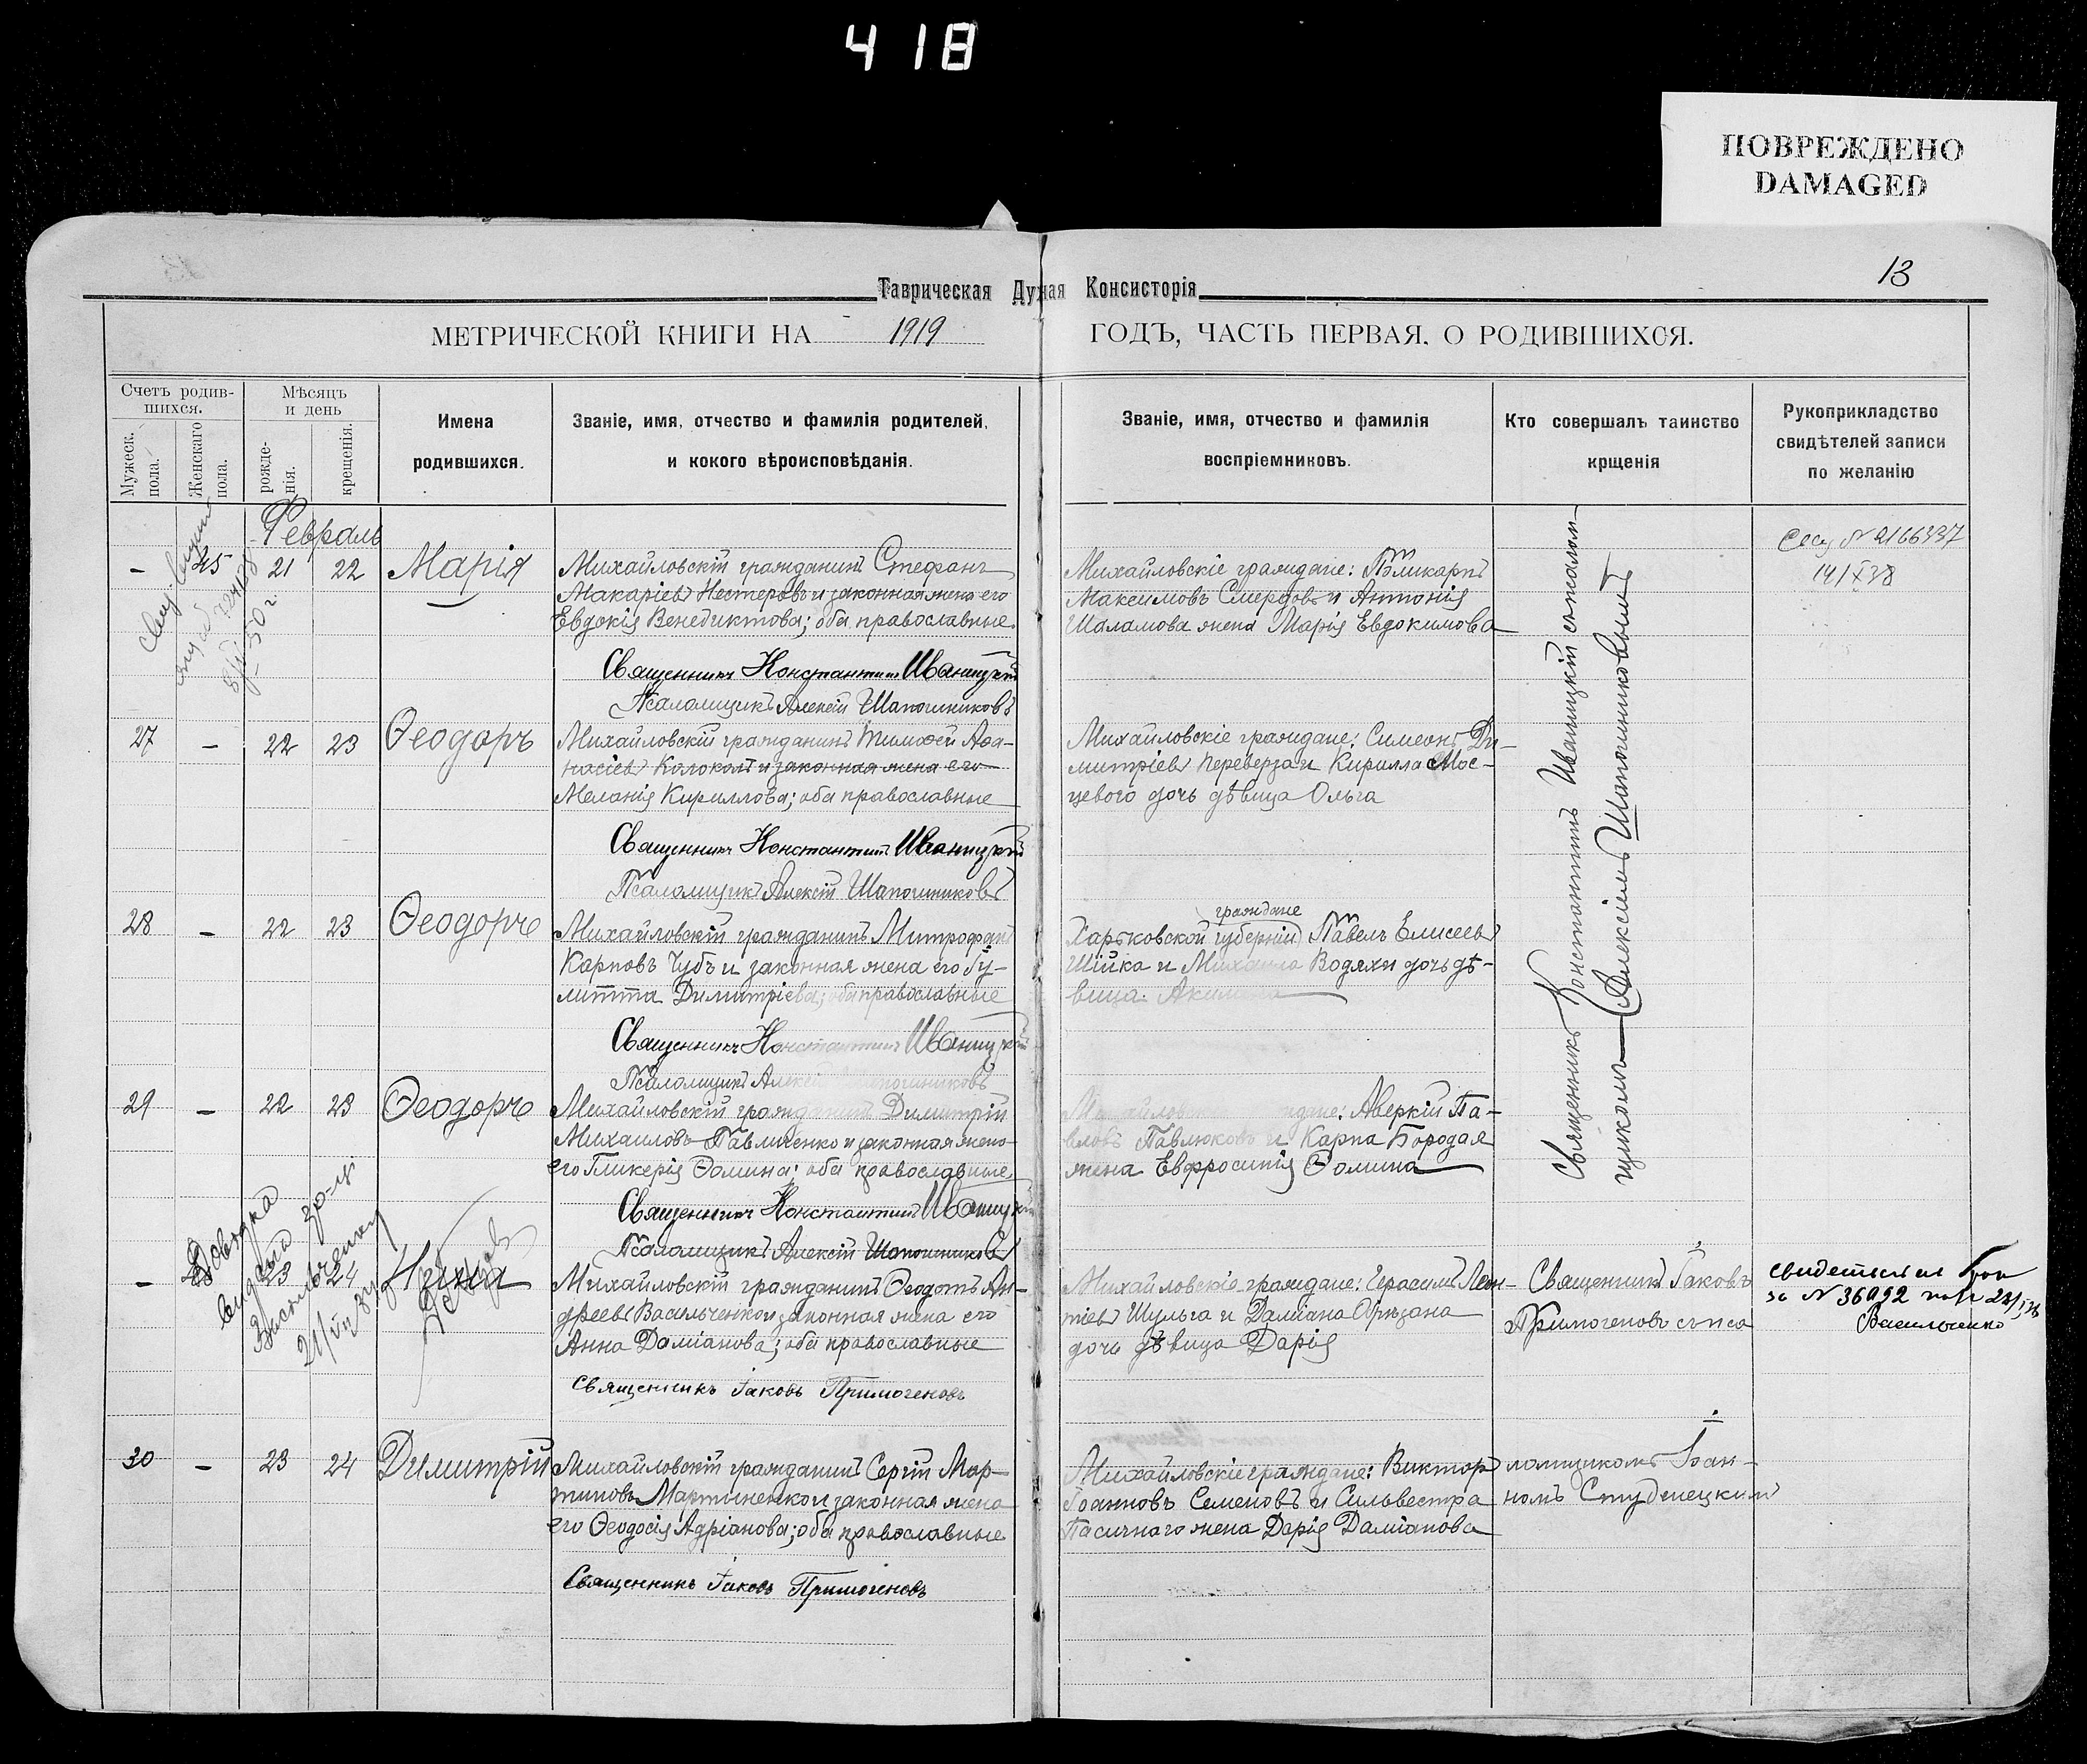 418
ПОВРЕЖДЕНО
DAMAGED
13
Таврическая Духная Консисторія
МЕТРИЧЕСКОЙ КНИГИ НА 1919 ГОДЪ, ЧАСТЬ ПЕРВАЯ, О РОДИВШИХСЯ.
Счетъ родив-
шихся.
Мужеск.
пола.
Женскаго
пола.
Мѣсяцъ
и день
рожде-
нія.
крещенія.
Имена
родившихся.
Званіе, имя, отчество и фамилія родителей,
и кокого вѣроисповѣданія.
Званіе, имя, отчество и фамилія
воспріемниковъ.
Кто совершалъ таинство
крщенія
Рукоприкладство
свидѣтелей записи
по желанію
Февраль
- 25 21 22 Марія
Михайловскій гражданинъ Стефанъ
Макаріевъ Нестеровъ и законная жена его
Евдокія Венедиктова; оба православные.
Священникъ Константинъ Иваницкій
Псаломщикъ Алексій Шапошниковъ
Михайловскіе граждане: Поликарпъ
Максимовъ Смердовъ и Антонія
Шаламова жена Марія Евдокимова
N 2166337
14/X 38
27 - 22 23 Ѳеодоръ
Михайловскій гражданинъ Тимоѳей Аѳа-
насіевъ Колоколъ и законная жена его
Меланія Кириллова; оба православные
Священникъ Константинъ Иваницкій
Псаломщикъ Алексій Шапошниковъ
Михайловскіе граждане: Симеонъ Ди-
митріевъ Переверза и Кирилла Мос-
цевого дочь дѣвица Ольга
28 - 22 23 Ѳеодоръ
Михайловскій гражданинъ Митрофанъ
Карповъ Чубъ и законная жена его Іу-
литта Димитріева; оба православные
Священникъ Константинъ Иваницкій
Псаломщикъ Алексій Шапошниковъ
граждане
Харьковской губерніи Павелъ Елисеевъ
Шійка и Михаила Водяхи дочь дѣ-
вица
29 - 22 23 Ѳеодоръ
Михайловскій гражданинъ Димитрій
Михаиловъ Павличенко и законная жена
его Гликерія Ѳомина; оба православные
Священникъ Константинъ Иваницкій
Псаломщикъ Алексій Шапошниковъ
граждане: Аверкій Па-
вловъ Павлюковъ и Карпа Бородая
жена Евфросинія Ѳомина
Священникъ Константинъ Иваницкій съ псалом-
щикомъ Алексіемъ Шапошниковымъ
Довідка
видана
Васильченку
- 23 24
Михайловскій гражданинъ Ѳеодотъ Ан-
дреевъ Васильченко и законная жена его
Анна Даміанова; оба православные
Священникъ Іаковъ Примогеновъ
Михайловскіе граждане: Герасимъ Леон-
тіевъ Шульга и Даміана Обрѣзана
дочь дѣвица Дарія
Священникъ Іаковъ
Примогеновъ съ пса
за N 36992
Васильченко
30 - 23 24 Димитрій
Михайловскій гражданинъ Сергій Мар-
тиновъ Мартиненко и законная жена
его Ѳеодосія Адріанова; оба православные
Священникъ Іаковъ Примогеновъ
Михайловскіе граждане: Викторъ
Іоанновъ Семеновъ и Сильвестра
Пасичнаго жена Дарія Даміанова
ломщикомъ Іоан-
номъ Студенецкимъ